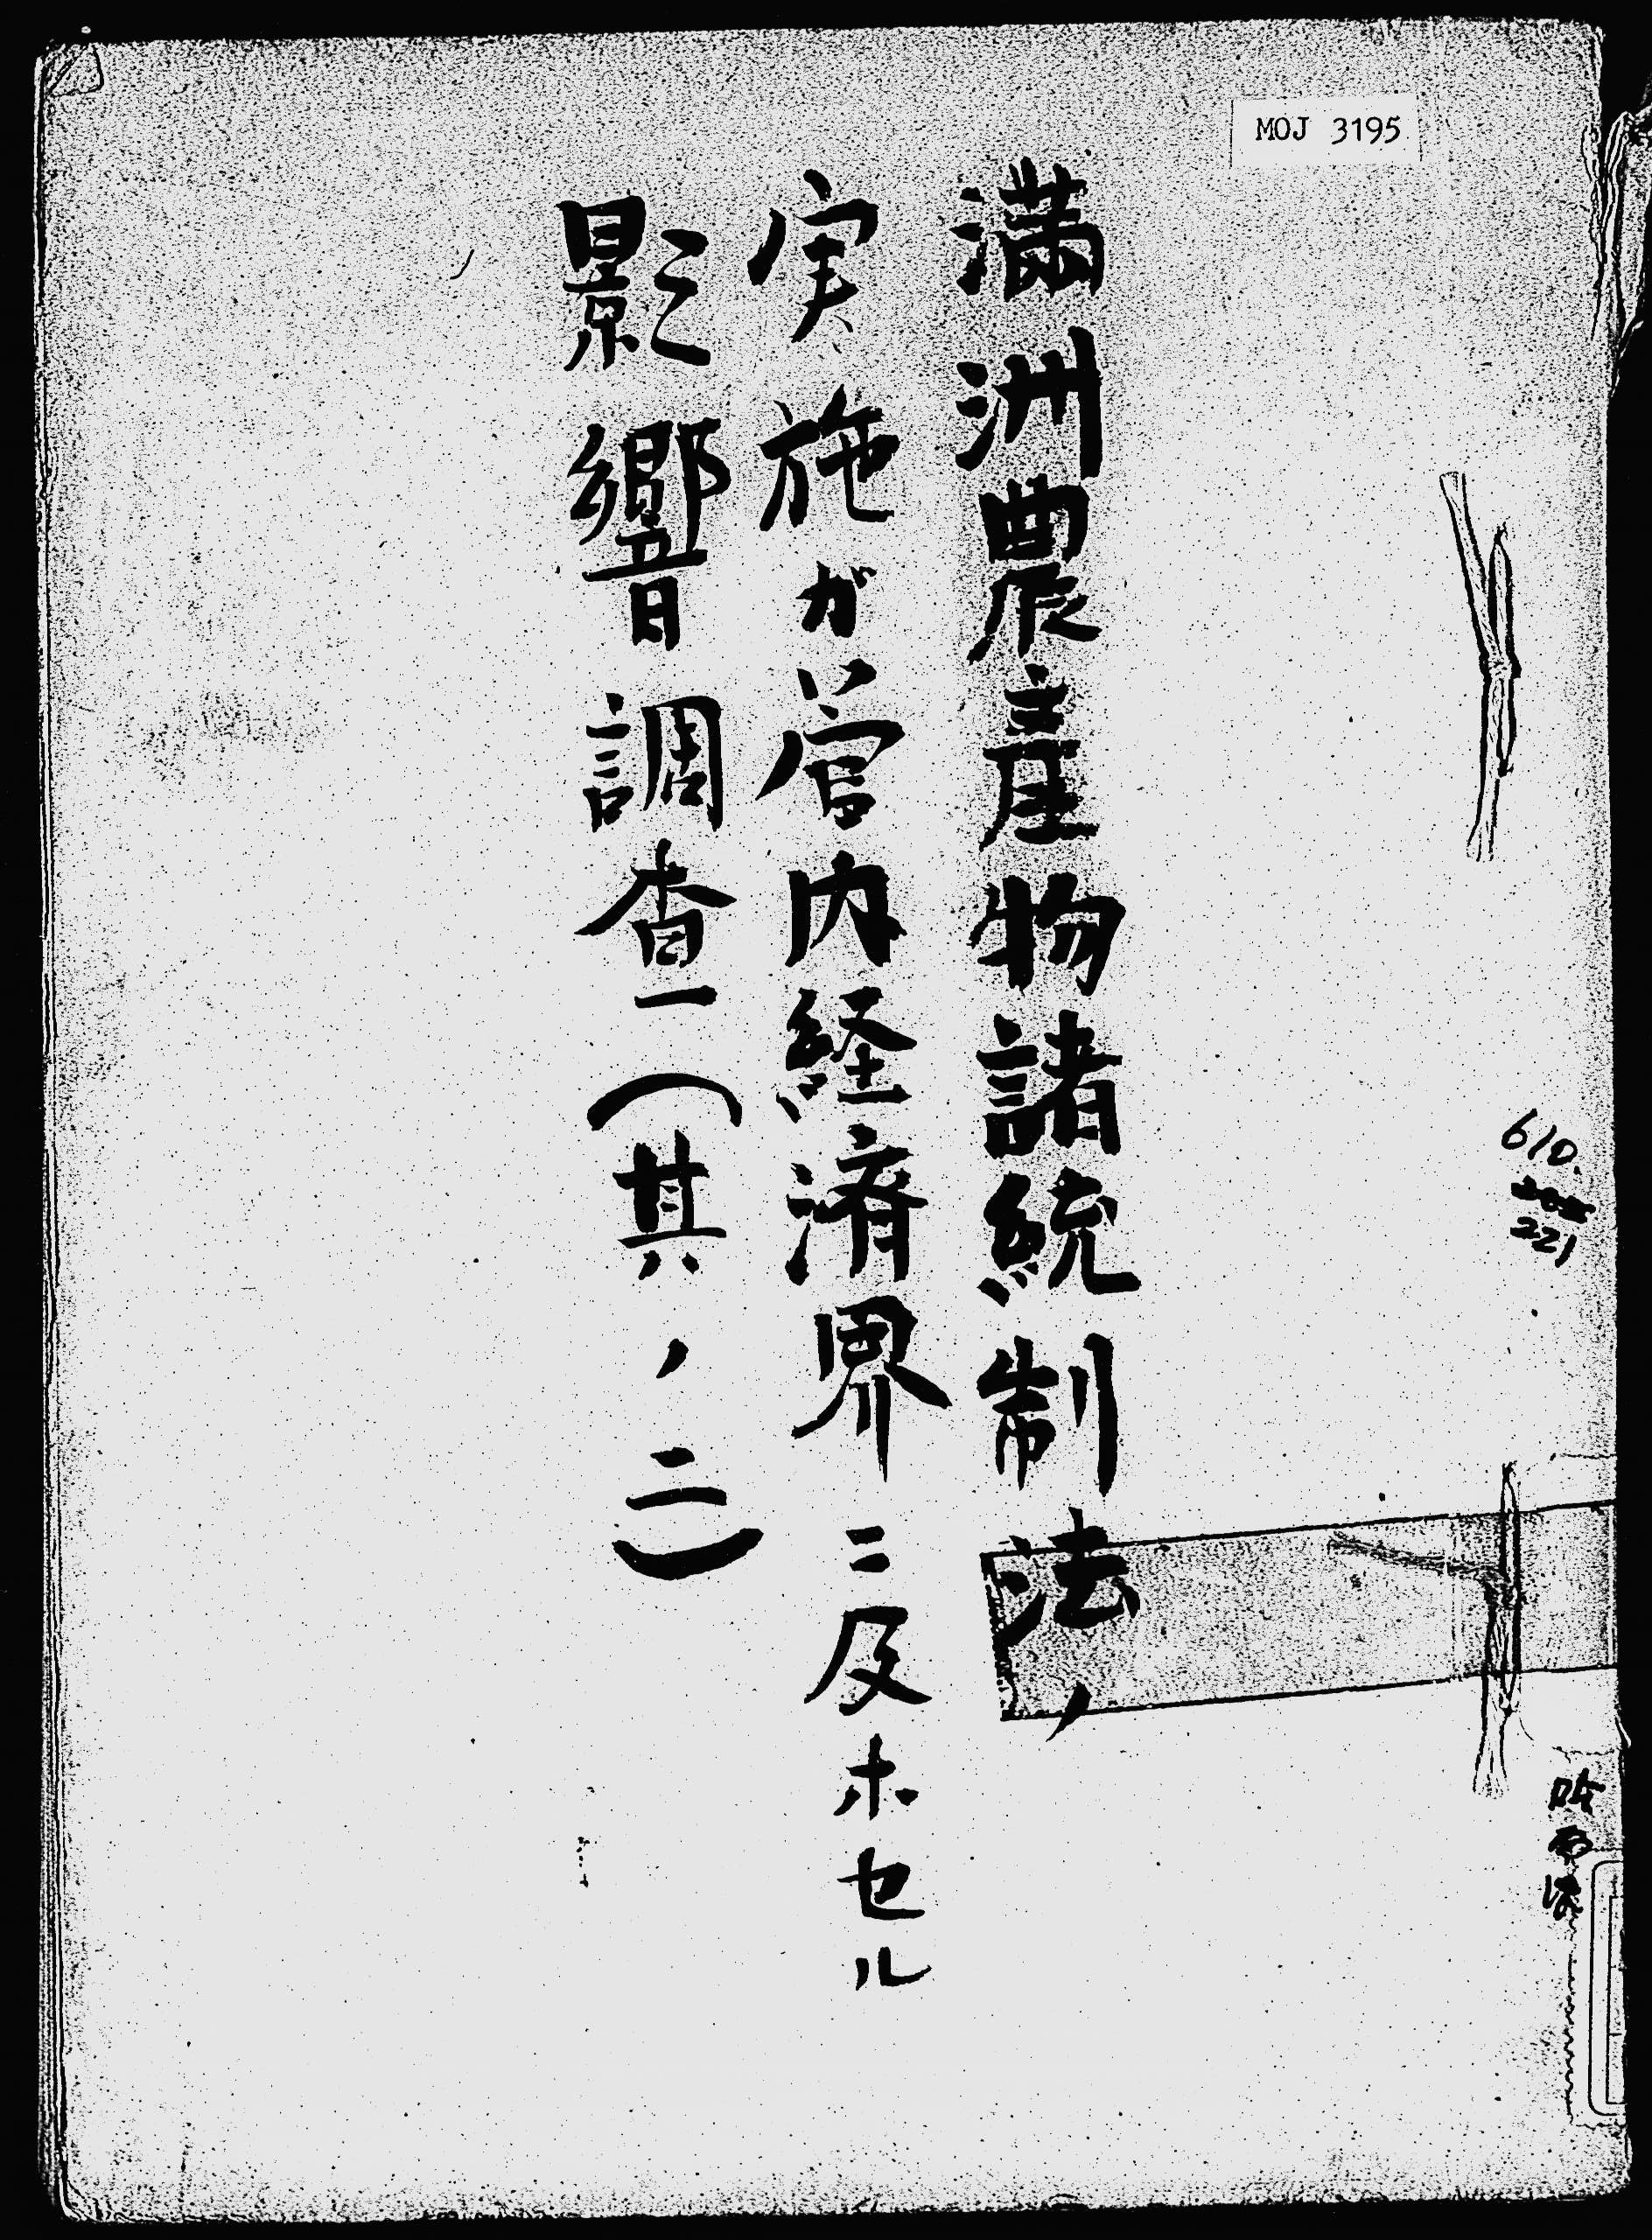 MOJ 3195
満洲農産物諸統制法ノ
実施ガ管内経済界ニ及ホセル
影響調査一(其ノ二)
610.
221